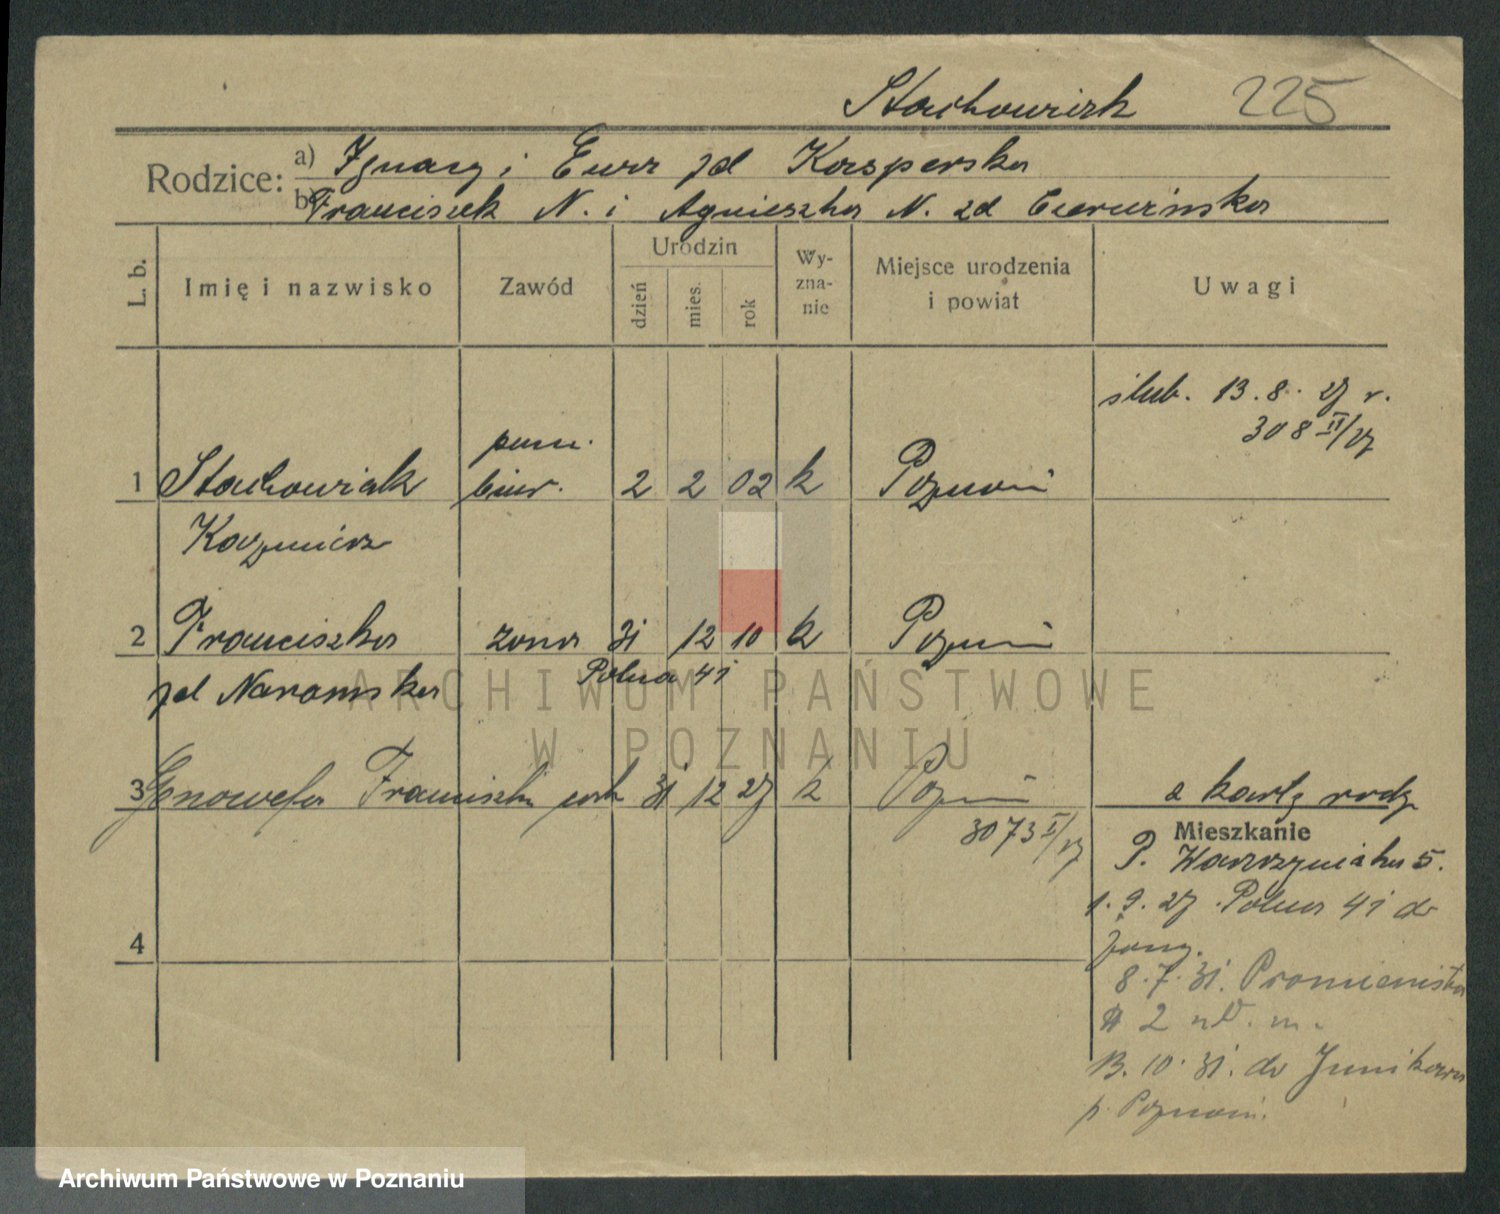 Stachowiak 225
Rodzice: a) Ignacy i Ewa zd Kasperska
b) Franciszek N. i Agnieszka N. zd
L. b. Imię i nazwisko Zawód Urodzin dzień mies. rok Wy-zna-nie Miejsce urodzenia i powiat Uwagi
ślub. 13.8.27 r.
308 II/27
pom.
1 Stachowiak biur. 2 2 02 k Poznań
Kazmierz
2 Franciszka żona 31 12 10 k Poznań
zd Naramska Polna 41
ARCHIWUM PAŃSTWOWE
W POZNANIU
3 Genowefa Franciszka córk 31 12 27 k Poznań
a karty rodz
3073 I/27
Mieszkanie
P. Wawrzyniaka 5.
1.9.27 Polna 41 do
4
8.7.31. Promienista
2 m.
13.10.31. do Junikowa
p. Poznań.
Archiwum Państwowe w Poznaniu